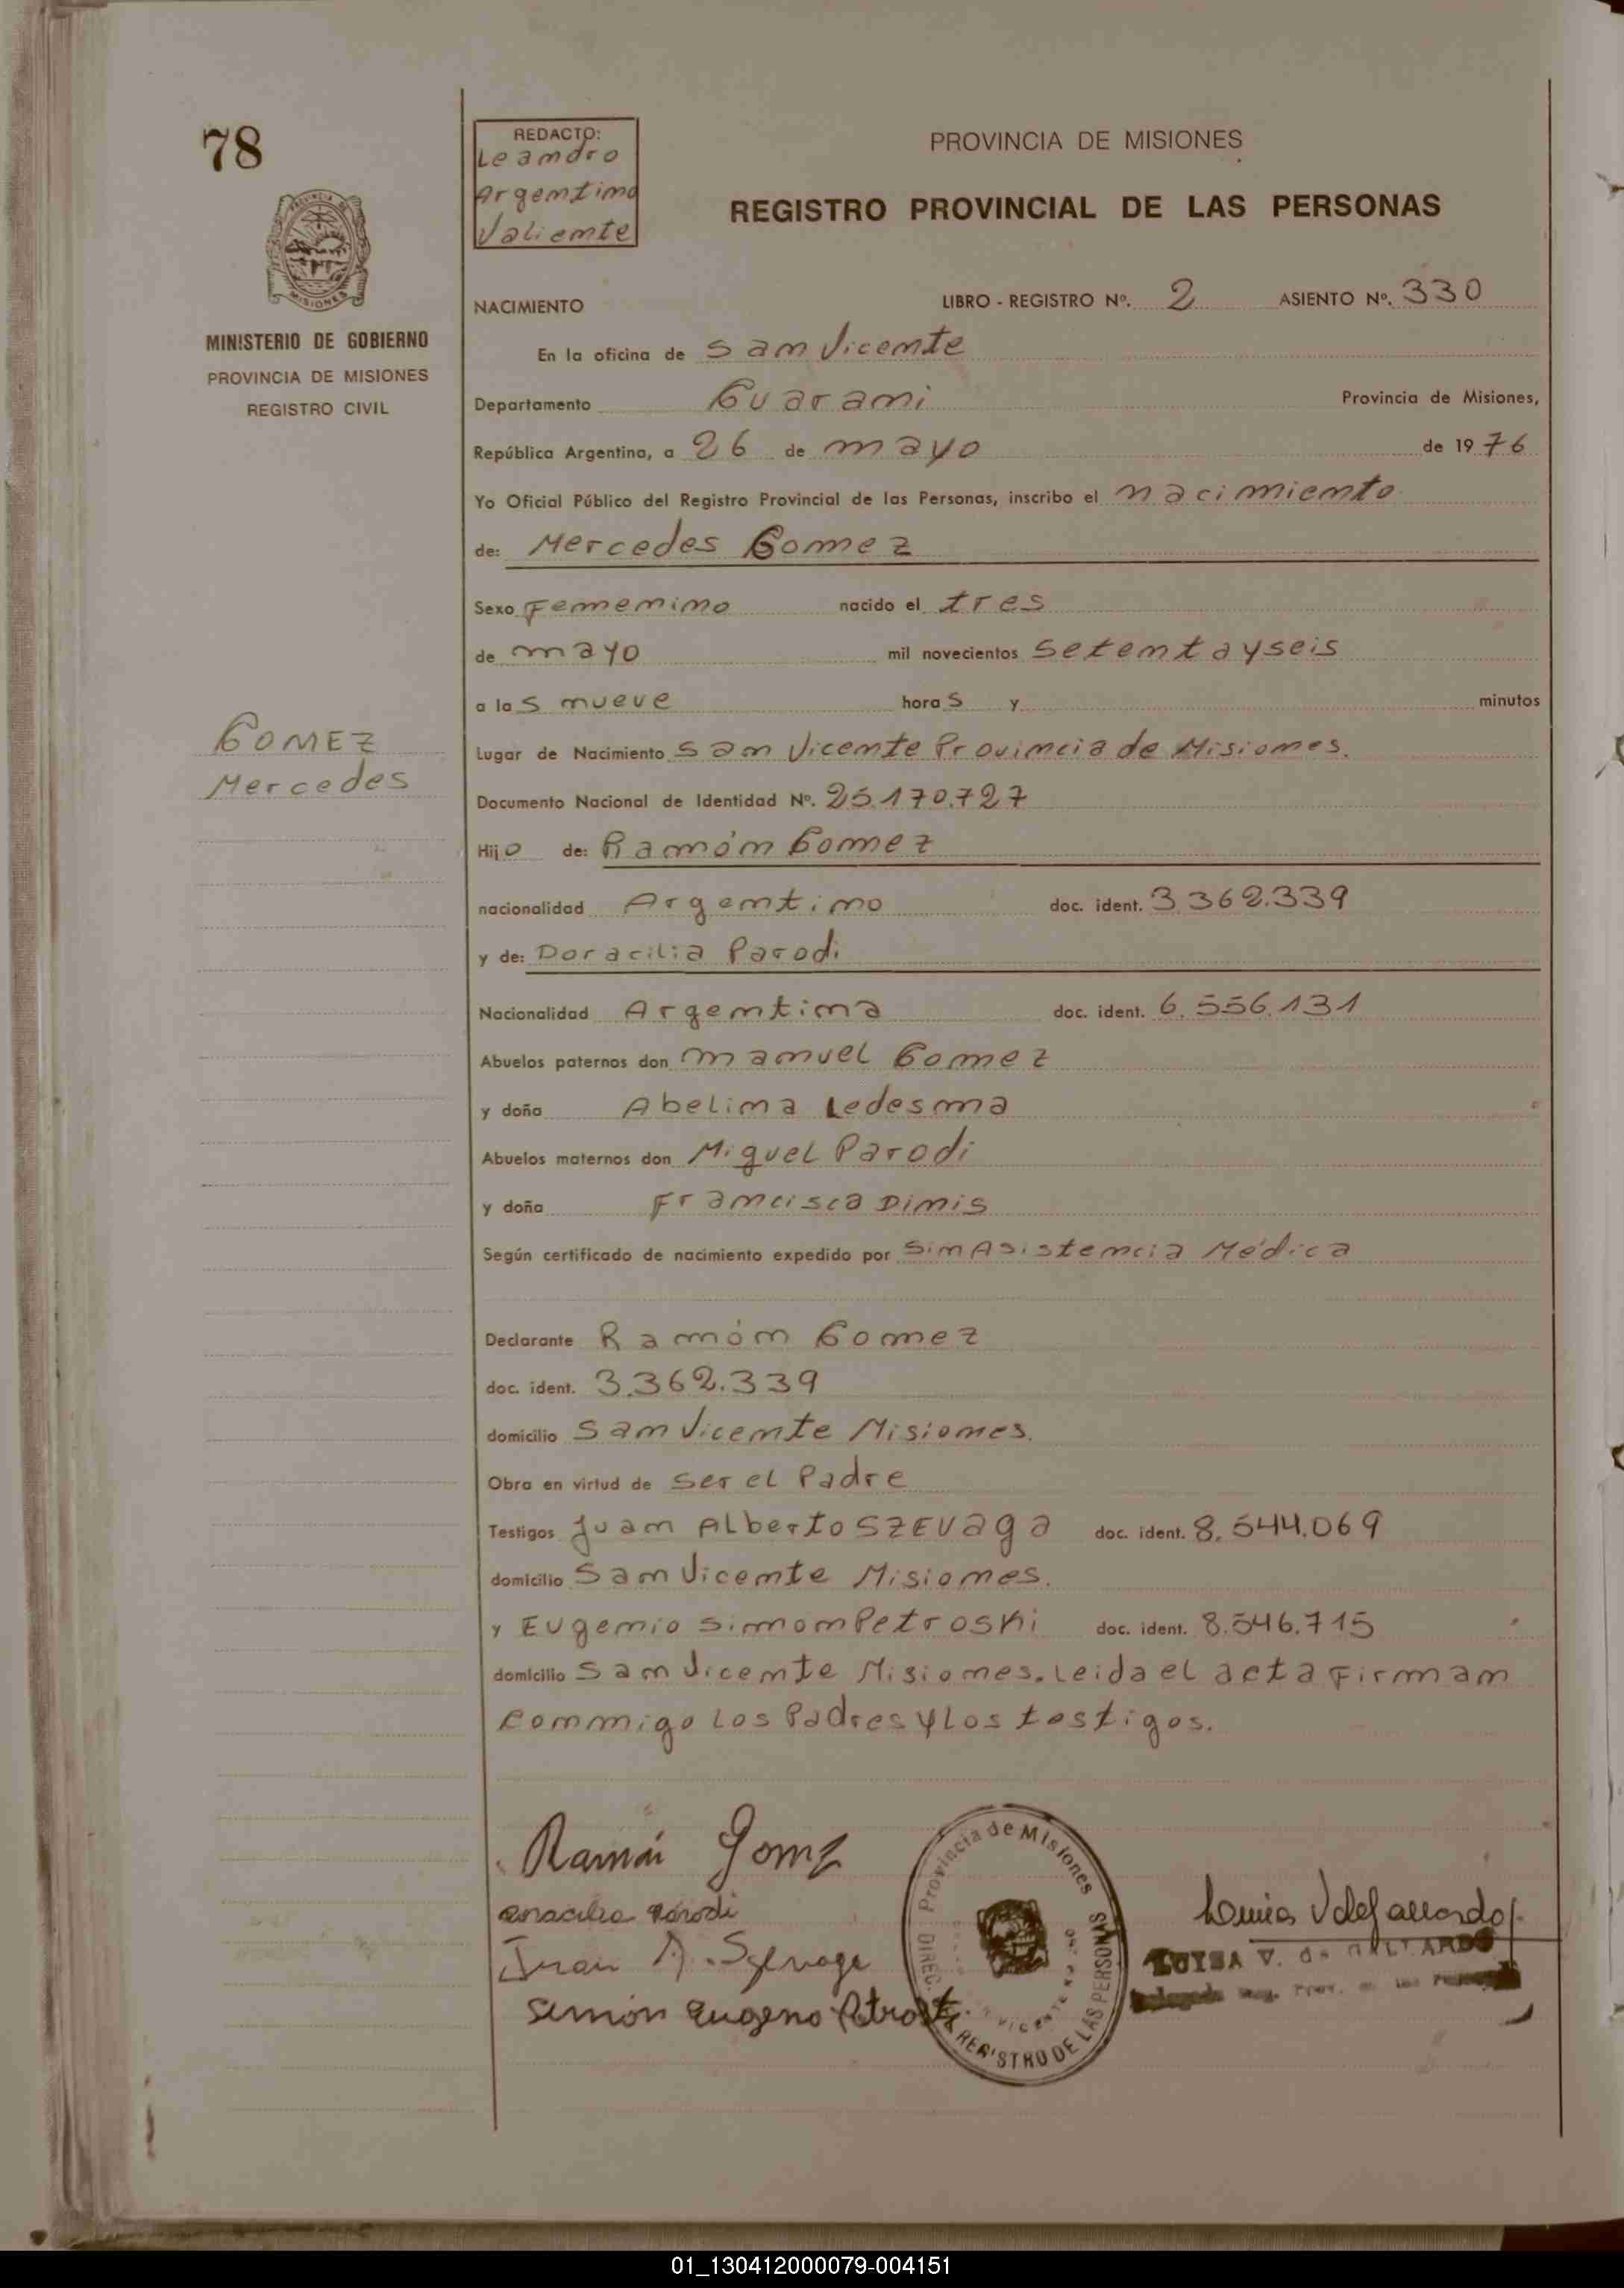 78
REDACTO:
Leandro
Argentino
Valiente
PROVINCIA DE MISIONES
REGISTRO PROVINCIAL DE LAS PERSONAS
MISIONES
MINISTERIO DE GOBIERNO
PROVINCIA DE MISIONES
REGISTRO CIVIL
NACIMIENTO LIBRO - REGISTRO Nº. 2 ASIENTO Nº. 330
En la oficina de San Vicente
Departamento Guarani Provincia de Misiones,
República Argentina, a 26 de mayo de 1976
Yo Oficial Público del Registro Provincial de las Personas, inscribo el nacimiento
de: Mercedes Gomez
Sexo Femenino nacido el tres
de mayo mil novecientos setentayseis
a las nueve horas y minutos
GOMEZ
Mercedes
Lugar de Nacimiento San Vicente Provincia de Misiones.
Documento Nacional de Identidad Nº. 25.170.727
Hijo de: Ramón Gomez
nacionalidad Argentino doc. ident. 3.362.339
y de: Doracilia Parodi
Nacionalidad Argentina doc. ident. 6.556.131
Abuelos paternos don Manuel Gomez
y doña Abelina Ledesma
Abuelos maternos don Miguel Parodi
y doña Francisca Dinis
Según certificado de nacimiento expedido por Sin Asistencia Médica
Declarante Ramón Gomez
doc. ident. 3.362.339
domicilio San Vicente Misiones.
Obra en virtud de Ser el Padre
Testigos Juan Alberto SZEVAga doc. ident. 8.544.069
domicilio San Vicente Misiones.
y Eugenio Simon Petroski doc. ident. 8.546.715
domicilio San Vicente Misiones. Leida el acta Firman
conmigo Los Padres y Los testigos.
Ramón Gomez
Doracilia Parodi
Juan A. Szevaga
Simón Eugenio Petroski
Provincia de Misiones
DIREC. REGISTRO DE LAS PERSONAS
LUISA V. de GALLARDO
01_130412000079-004151